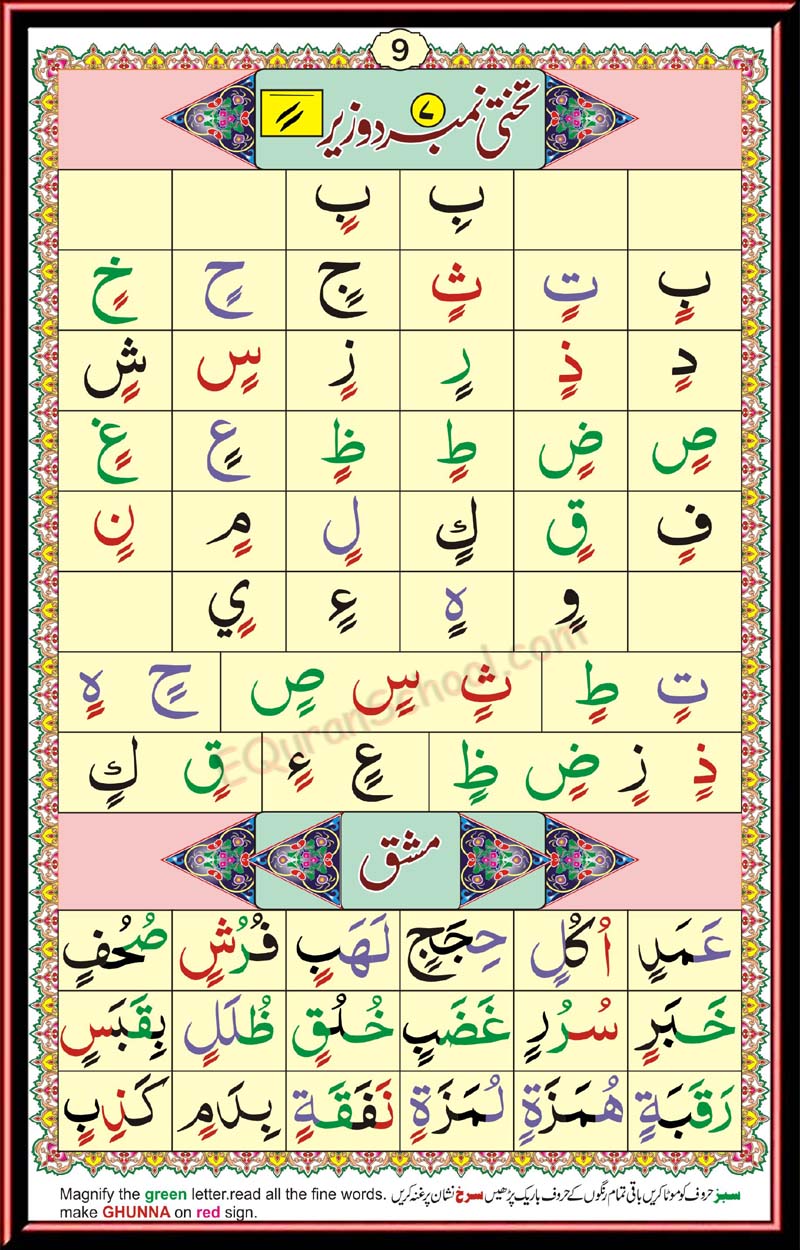 9
تختی نمبر ۷ دو زیر ـٍ
بِ بٍ
بٍ تٍ ثٍ جٍ حٍ خٍ
دٍ ذٍ رٍ زٍ سٍ شٍ
صٍ ضٍ طٍ ظٍ عٍ غٍ
فٍ قٍ كٍ لٍ مٍ نٍ
وٍ هٍ ءٍ يٍ
تٍ طٍ ثٍ سٍ صٍ حٍ هٍ
ذٍ زٍ ضٍ ظٍ عٍ ءٍ قٍ كٍ
EQuranSchool.com
مشق
عَمَدٍ اُكُلٍ حِجَجٍ لَهَبٍ فُرُشٍ صُحُفٍ
خَبَرٍ سُرُرٍ غَضَبٍ خُلُقٍ ظُلَلٍ بِقَبَسٍ
رَقَبَةٍ هُمَزَةٍ لُمَزَةٍ نَفَقَةٍ بِدَمٍ كَذِبٍ
سبز حروف کو موٹا کریں باقی تمام رنگوں کے حروف باریک پڑھیں سرخ نشان پر غنہ کریں
Magnify the green letter.read all the fine words.
make GHUNNA on red sign.